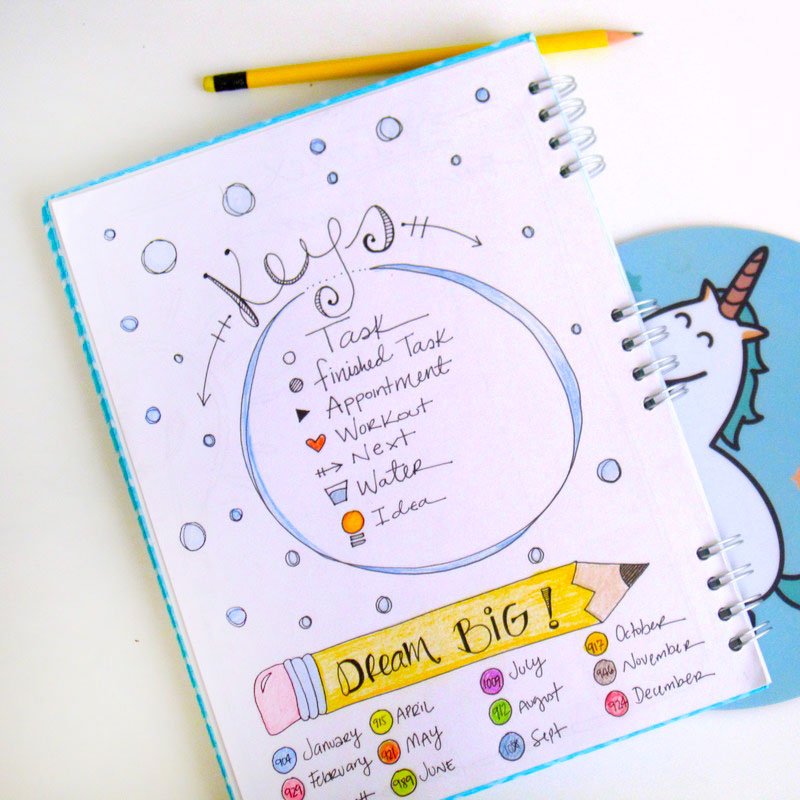 Keys
Task
finished Task
Appointment
Workout
Next
Water
Idea
Dream BiG!
904 January
929 February
915 APRIL
921 MAY
989 JUNE
1009 July
912 August
Sept
917 October
946 November
924 December